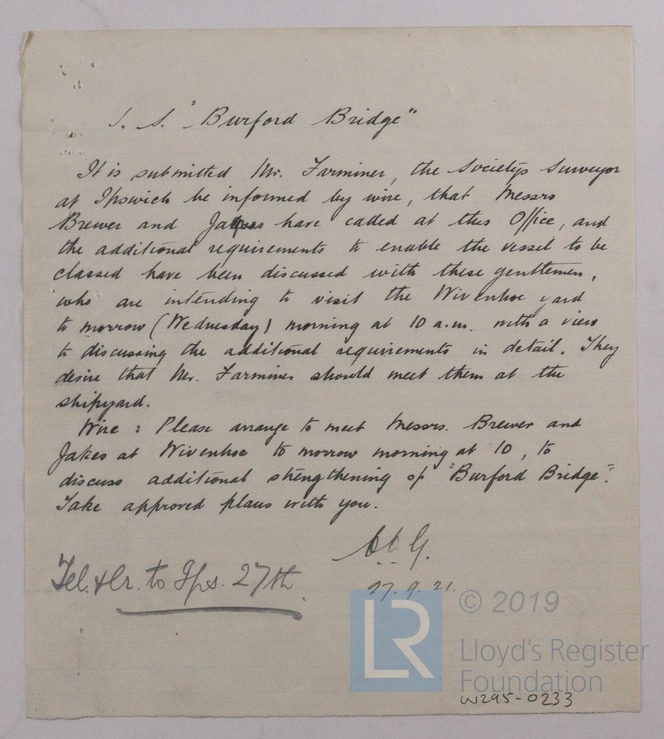 S. S. "Burford Bridge"
It is submitted Mr. Farminer, the Society's Surveyor
at Ipswich be informed by wire, that Messrs
Brewer and Jakes have called at this Office, and
the additional requirements to enable the vessel to be
classed have been discussed with these gentlemen,
who are intending to visit the Wivenhoe yard
to morrow (Wednesday) morning at 10 a.m. with a view
to discussing the additional requirements in detail. They
desire that Mr. Farminer should meet them at the
shipyard.
Wire : Please arrange to meet Messrs. Brewer and
Jakes at Wivenhoe to morrow morning at 10, to
discuss additional strengthening of "Burford Bridge".
Take approved plans with you.
27.9.21.
Tel. & Lr. to Ips. 27th
LR © 2019
Lloyd's Register
Foundation
W295-0233